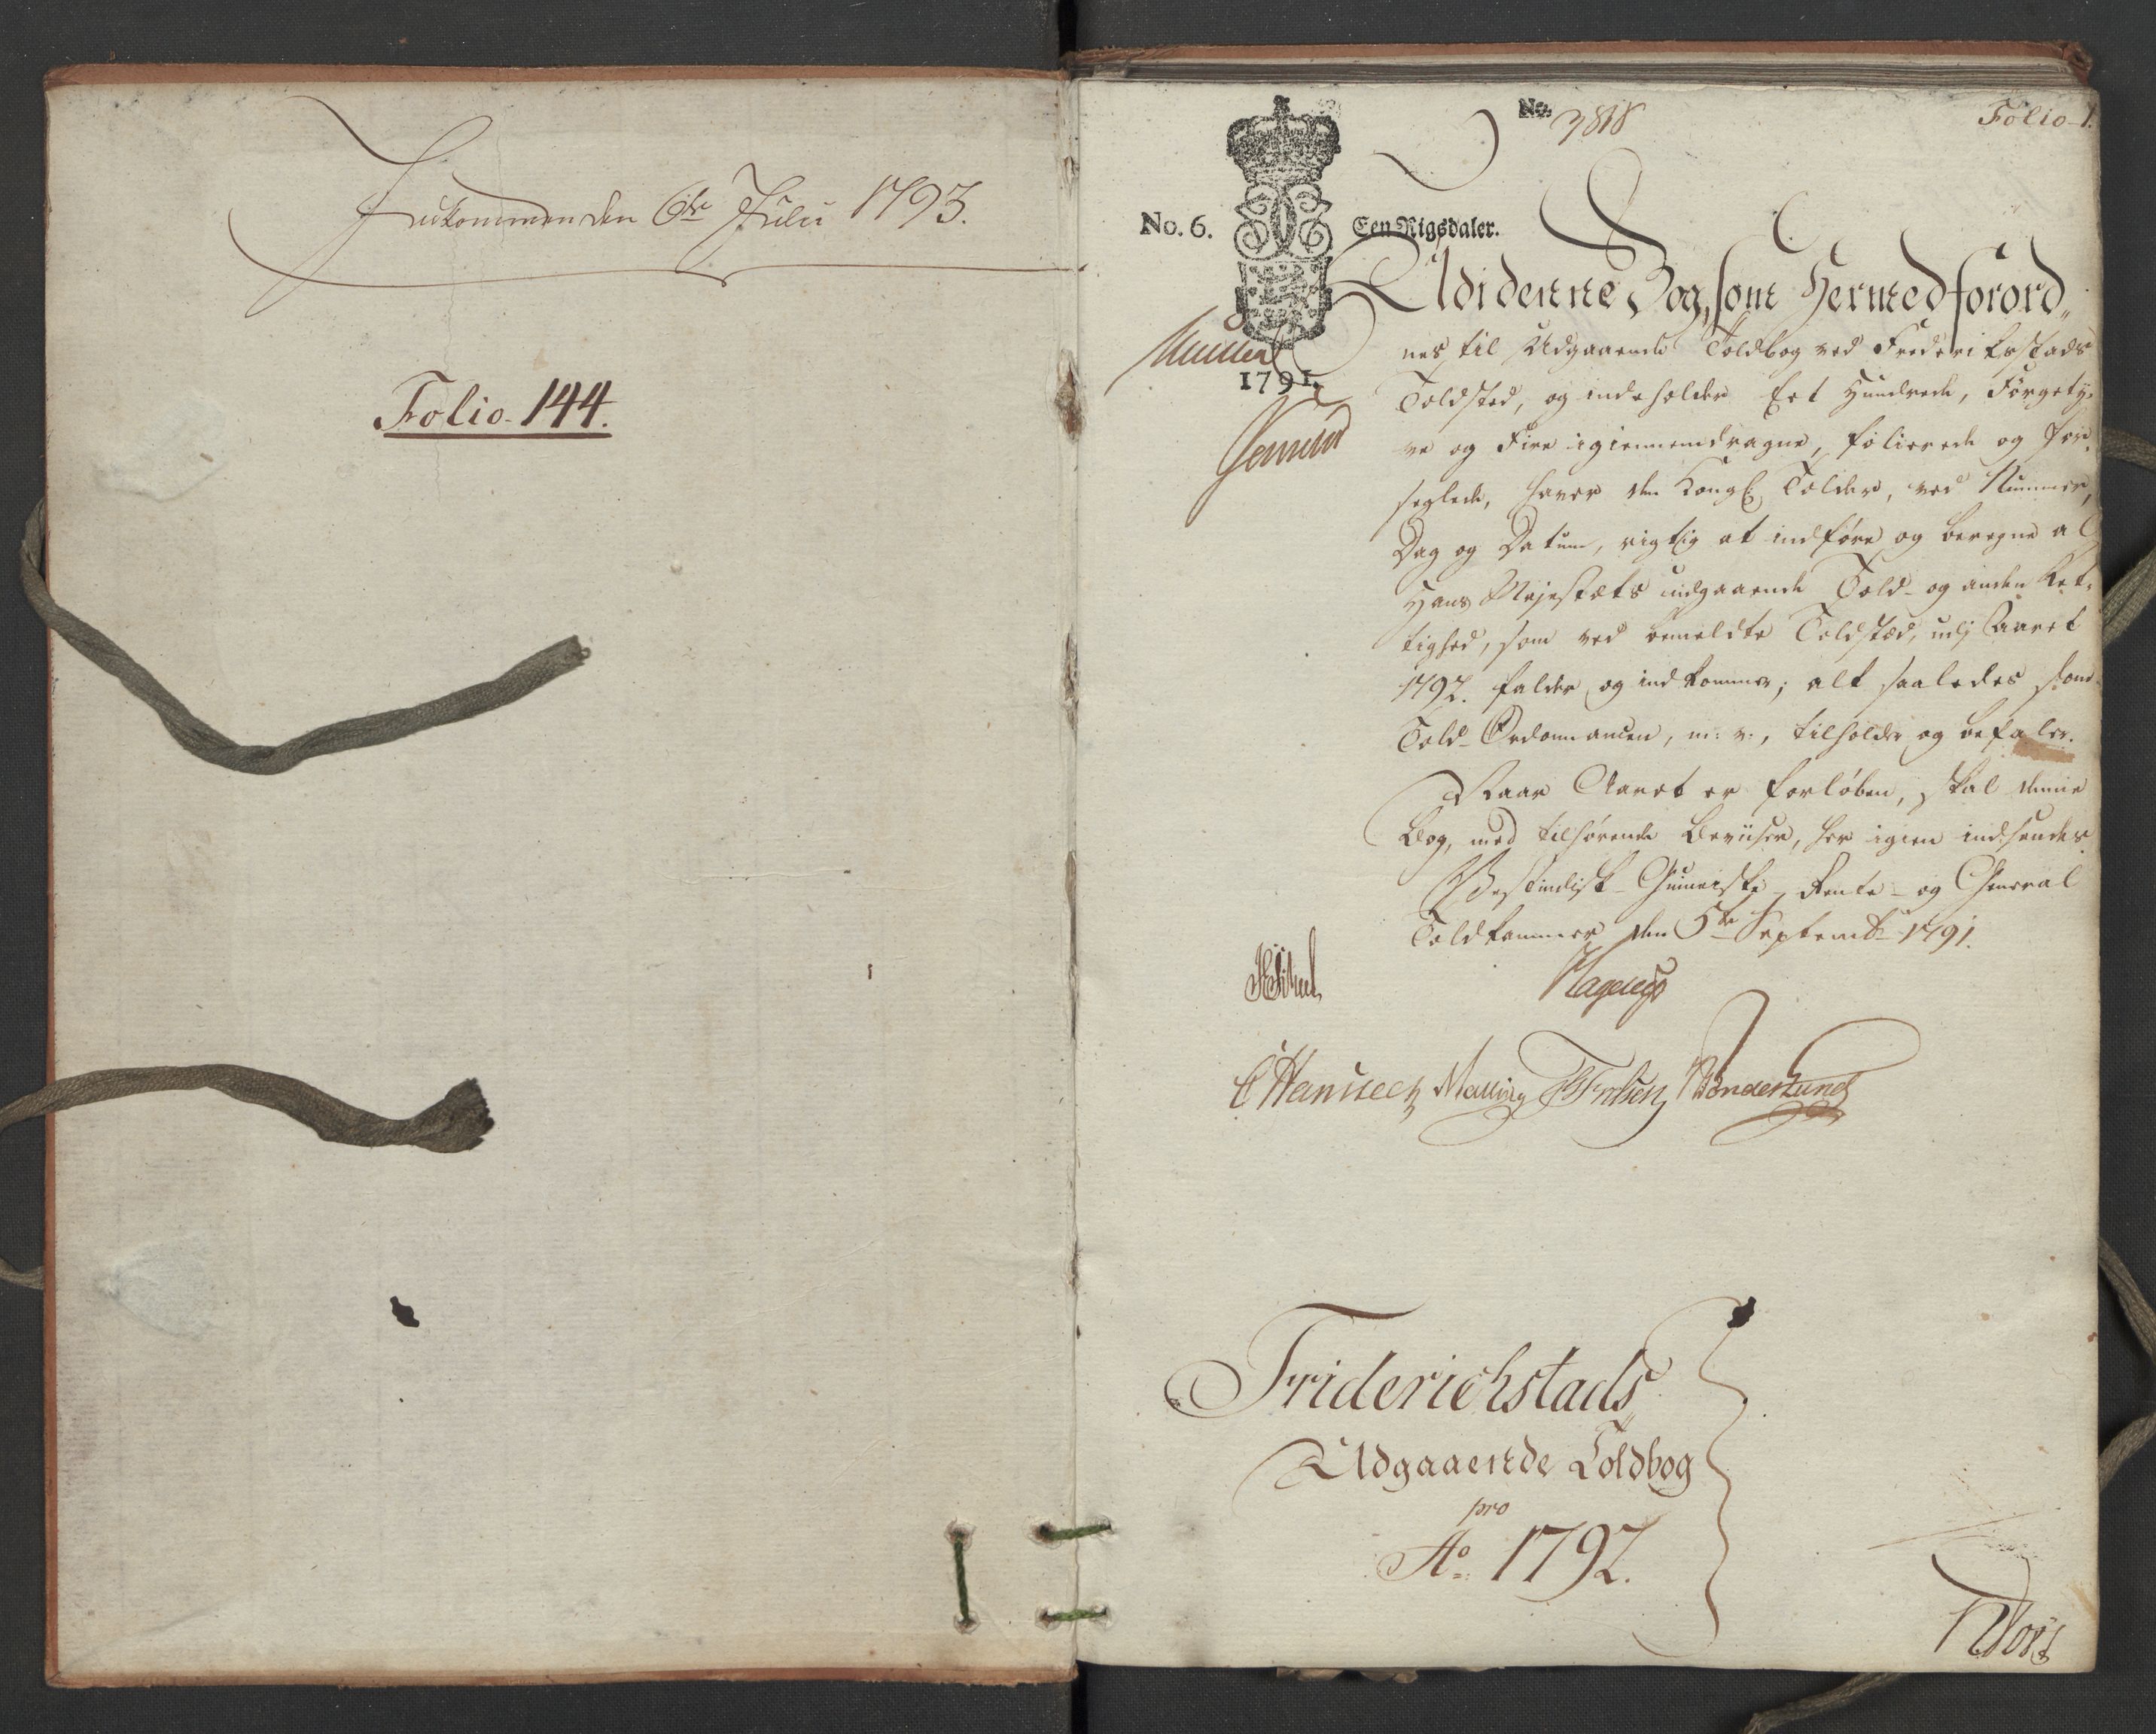 Indkommen den 6te Julii 1793.
Folio 144.
No. 3818
Folio 1.
No. 6.
Een Rigsdaler.
1791.
Udi denne Bog, som Hermed forord„
nes til Udgaaende Toldbog ved Frederikstads
Toldsted, og indeholder Eet Hundrede, Førgety„
ve og Fire igiennemdragne, folierede og for„
seglede, haver den Kongl: Tolder, ved Nummer,
Dag og Datum, rigtig at indføre og beregne al
Hans Majestæts udgaaende Told- og anden Ret„
tighed, som ved bemeldte Toldsted, udj Aaret
1792. falder og indkommer; alt saaledes som
Told-Ordonnancen, m: v:, tilholder og befaler.
Naar Aaret er forløben, skal denne
Bog, med tilhørende Beviiser, her igien indsendes.
Vestindisk-Guineiske Rente- og General
Toldkammer den 5te Septembr 1791.
C Hansteen Malling Wonderlund
Friderichstads
Udgaaende Toldbog
pro
Ao 1792.